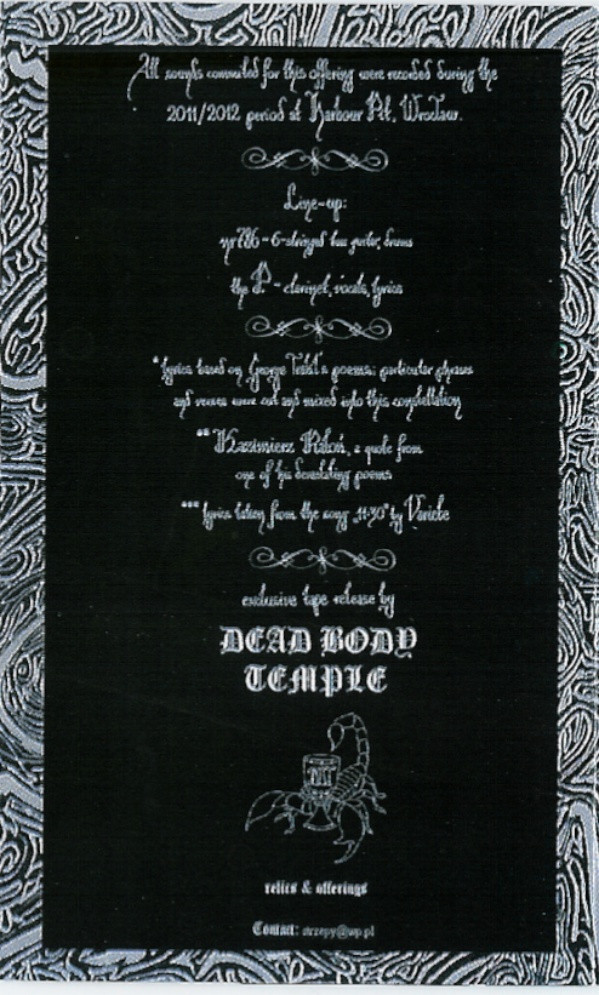 All sounds commited for this offering were recorded during the
2011/2012 period at Harbour Pit, Wrocław.
Line-up:
nr786 - 6-stringed bass guitar, drums
the P. - clarinet, vocals, lyrics
* lyrics based on George Trakl's poems: particular phrases
and verses were cut and mixed into this constellation
** Kazimierz Ratoń, a quote from
one of his devastating poems
*** lyrics taken from the song „11-30" by Variete
exclusive tape release by
DEAD BODY
TEMPLE
relics & offerings
Contact: strzepy@wp.pl